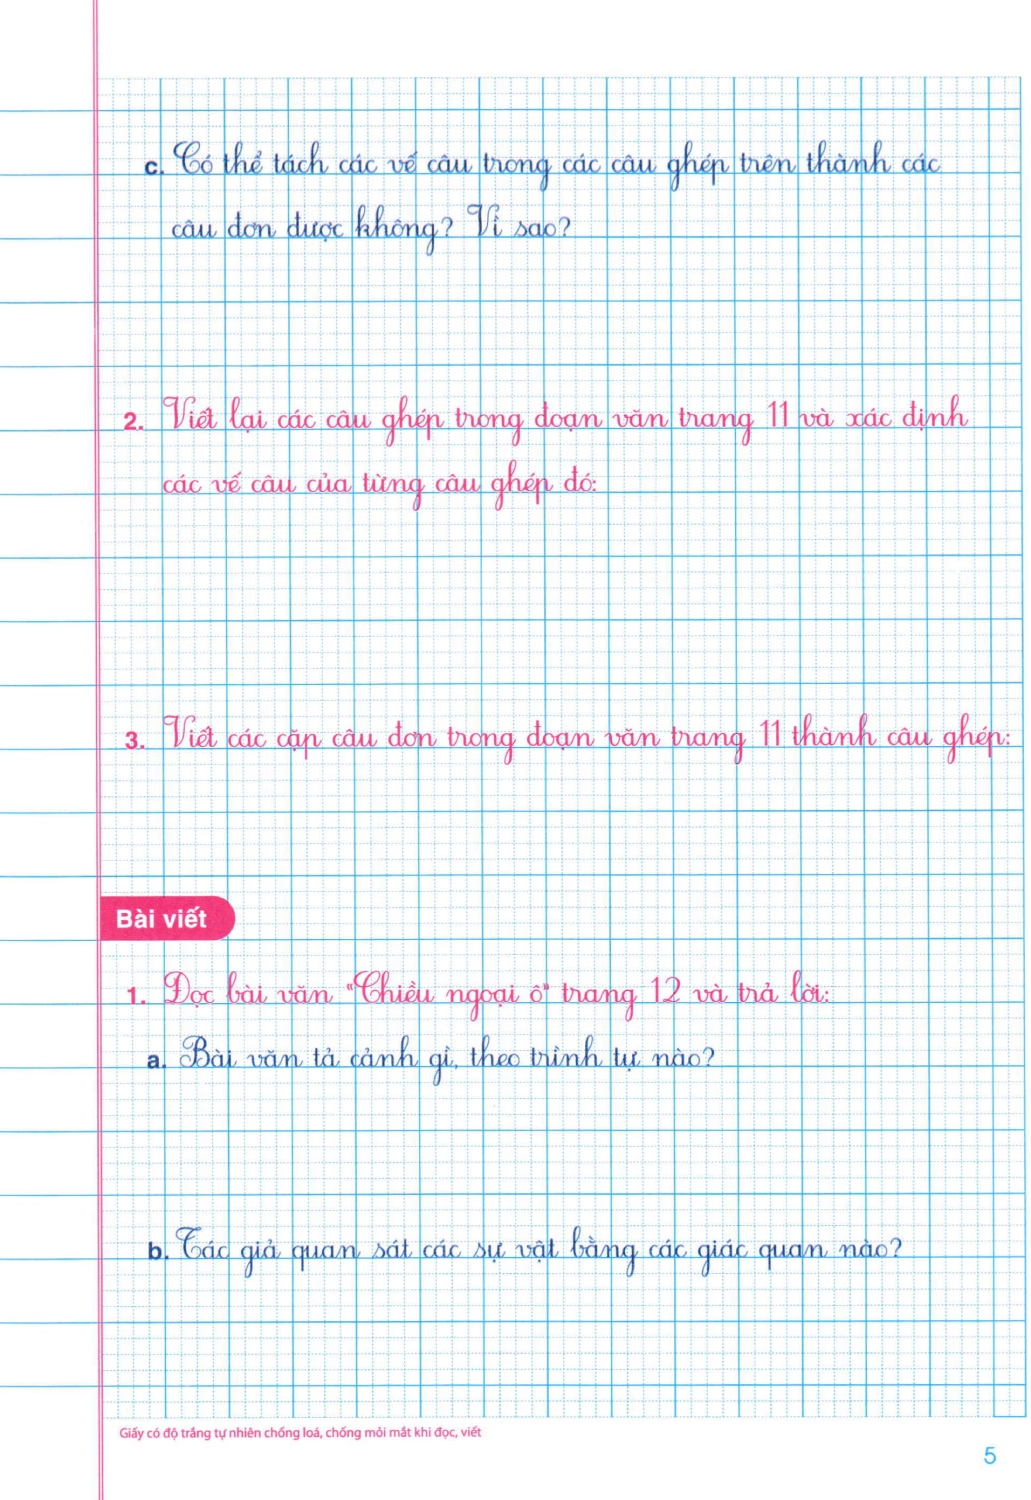 c. Có thể tách các vế câu trong các câu ghép trên thành các
câu đơn được không? Vì sao?
2. Viết lại các câu ghép trong đoạn văn trang 11 và xác định
các vế câu của từng câu ghép đó:
3. Viết các cặp câu đơn trong đoạn văn trang 11 thành câu ghép:
Bài viết
1. Đọc bài văn "Chiều ngoại ô" trang 12 và trả lời:
a. Bài văn tả cảnh gì, theo trình tự nào?
b. Tác giả quan sát các sự vật bằng các giác quan nào?
Giấy có độ trắng tự nhiên chống loá, chống mỏi mắt khi đọc, viết
5